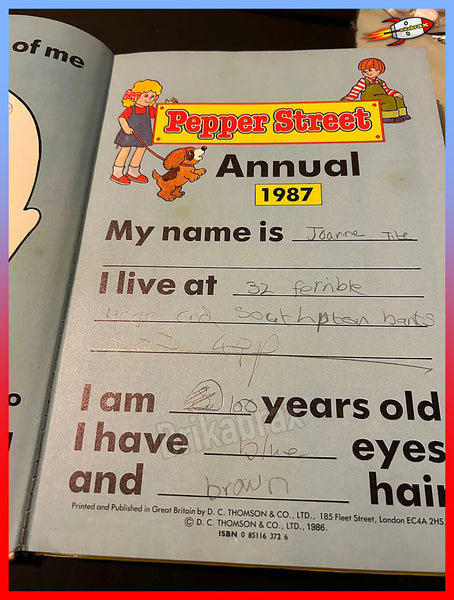 of me
Pepper Street
Annual
1987
My name is Joanne
I live at 32
Southpton hants
I am 100 years old
I have blue eyes
and brown hair
Printed and Published in Great Britain by D. C. THOMSON & CO., LTD., 185 Fleet Street, London EC4A 2HS.
© D. C. THOMSON & CO., LTD., 1986.
ISBN 0 85116 372 6